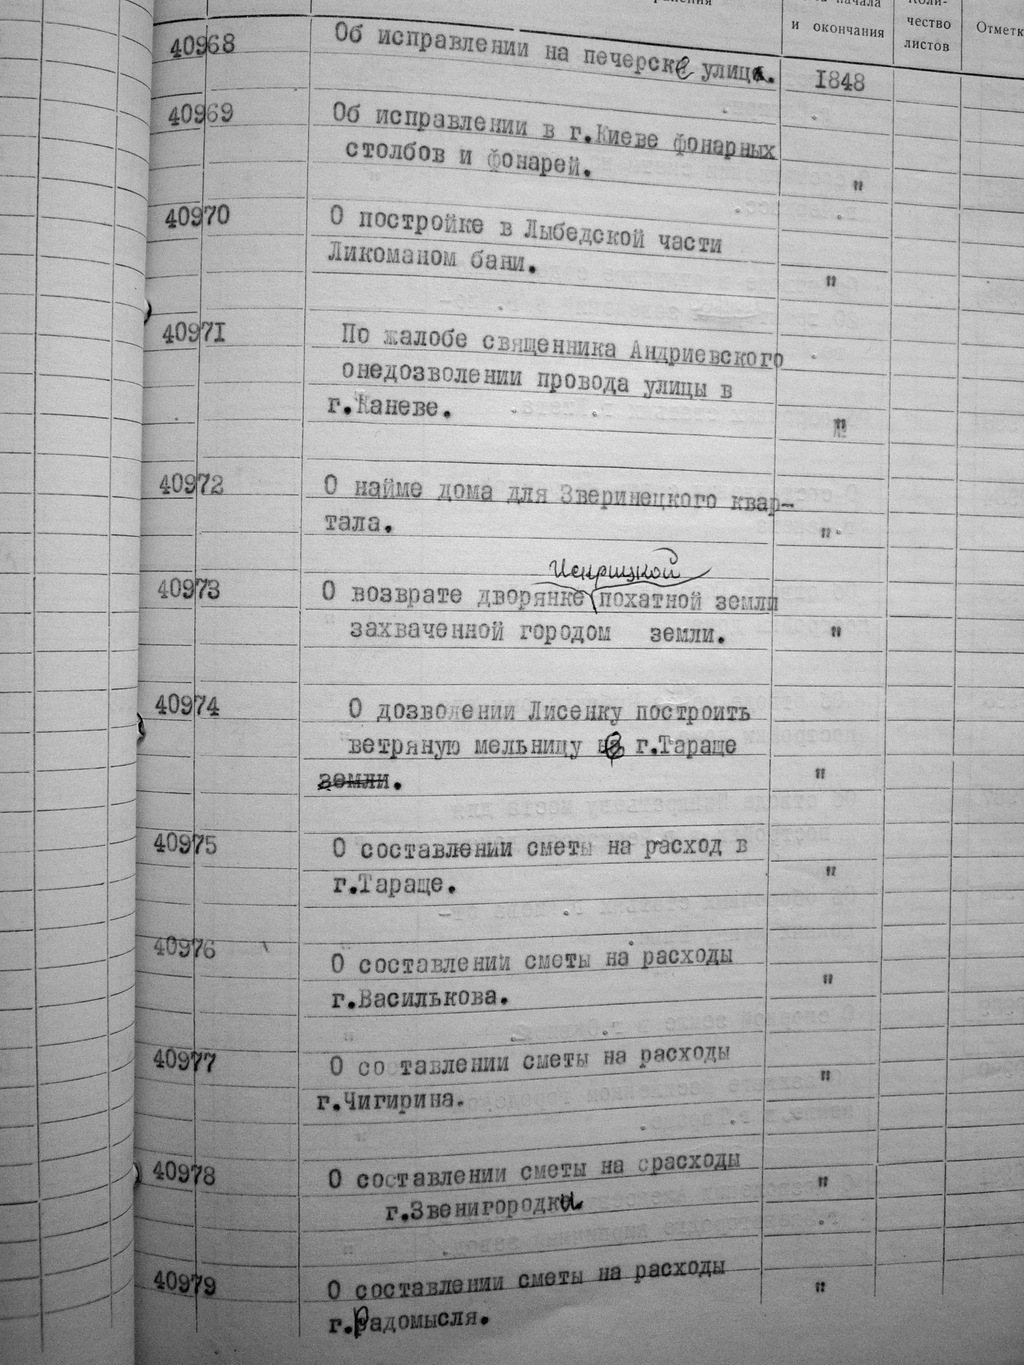 и окончания
чество
листов
40968 Об исправлении на печерске улиц. 1848
40969 Об исправлении в г.Киеве фонарных
столбов и фонарей. "
40970 О постройке в Лыбедской части
Ликоманом бани. "
40971 По жалобе священника Андриевского
онедозволении провода улицы в
г.Каневе. "
40972 О найме дома для Зверинецкого квар-
тала. "
40973 О возврате дворянке похатной земли
захваченной городом земли. "
40974 О дозволении Лисенку построить
ветряную мельницу в г.Тараще
земли. "
40975 О составлении сметы на расход в
г.Тараще. "
40976 О составлении сметы на расходы
г.Василькова. "
40977 О составлении сметы на расходы
г.Чигирина. "
40978 О составлении сметы на срасходы
г.Звенигородки "
40979 О составлении сметы на расходы "
г.Радомысля.